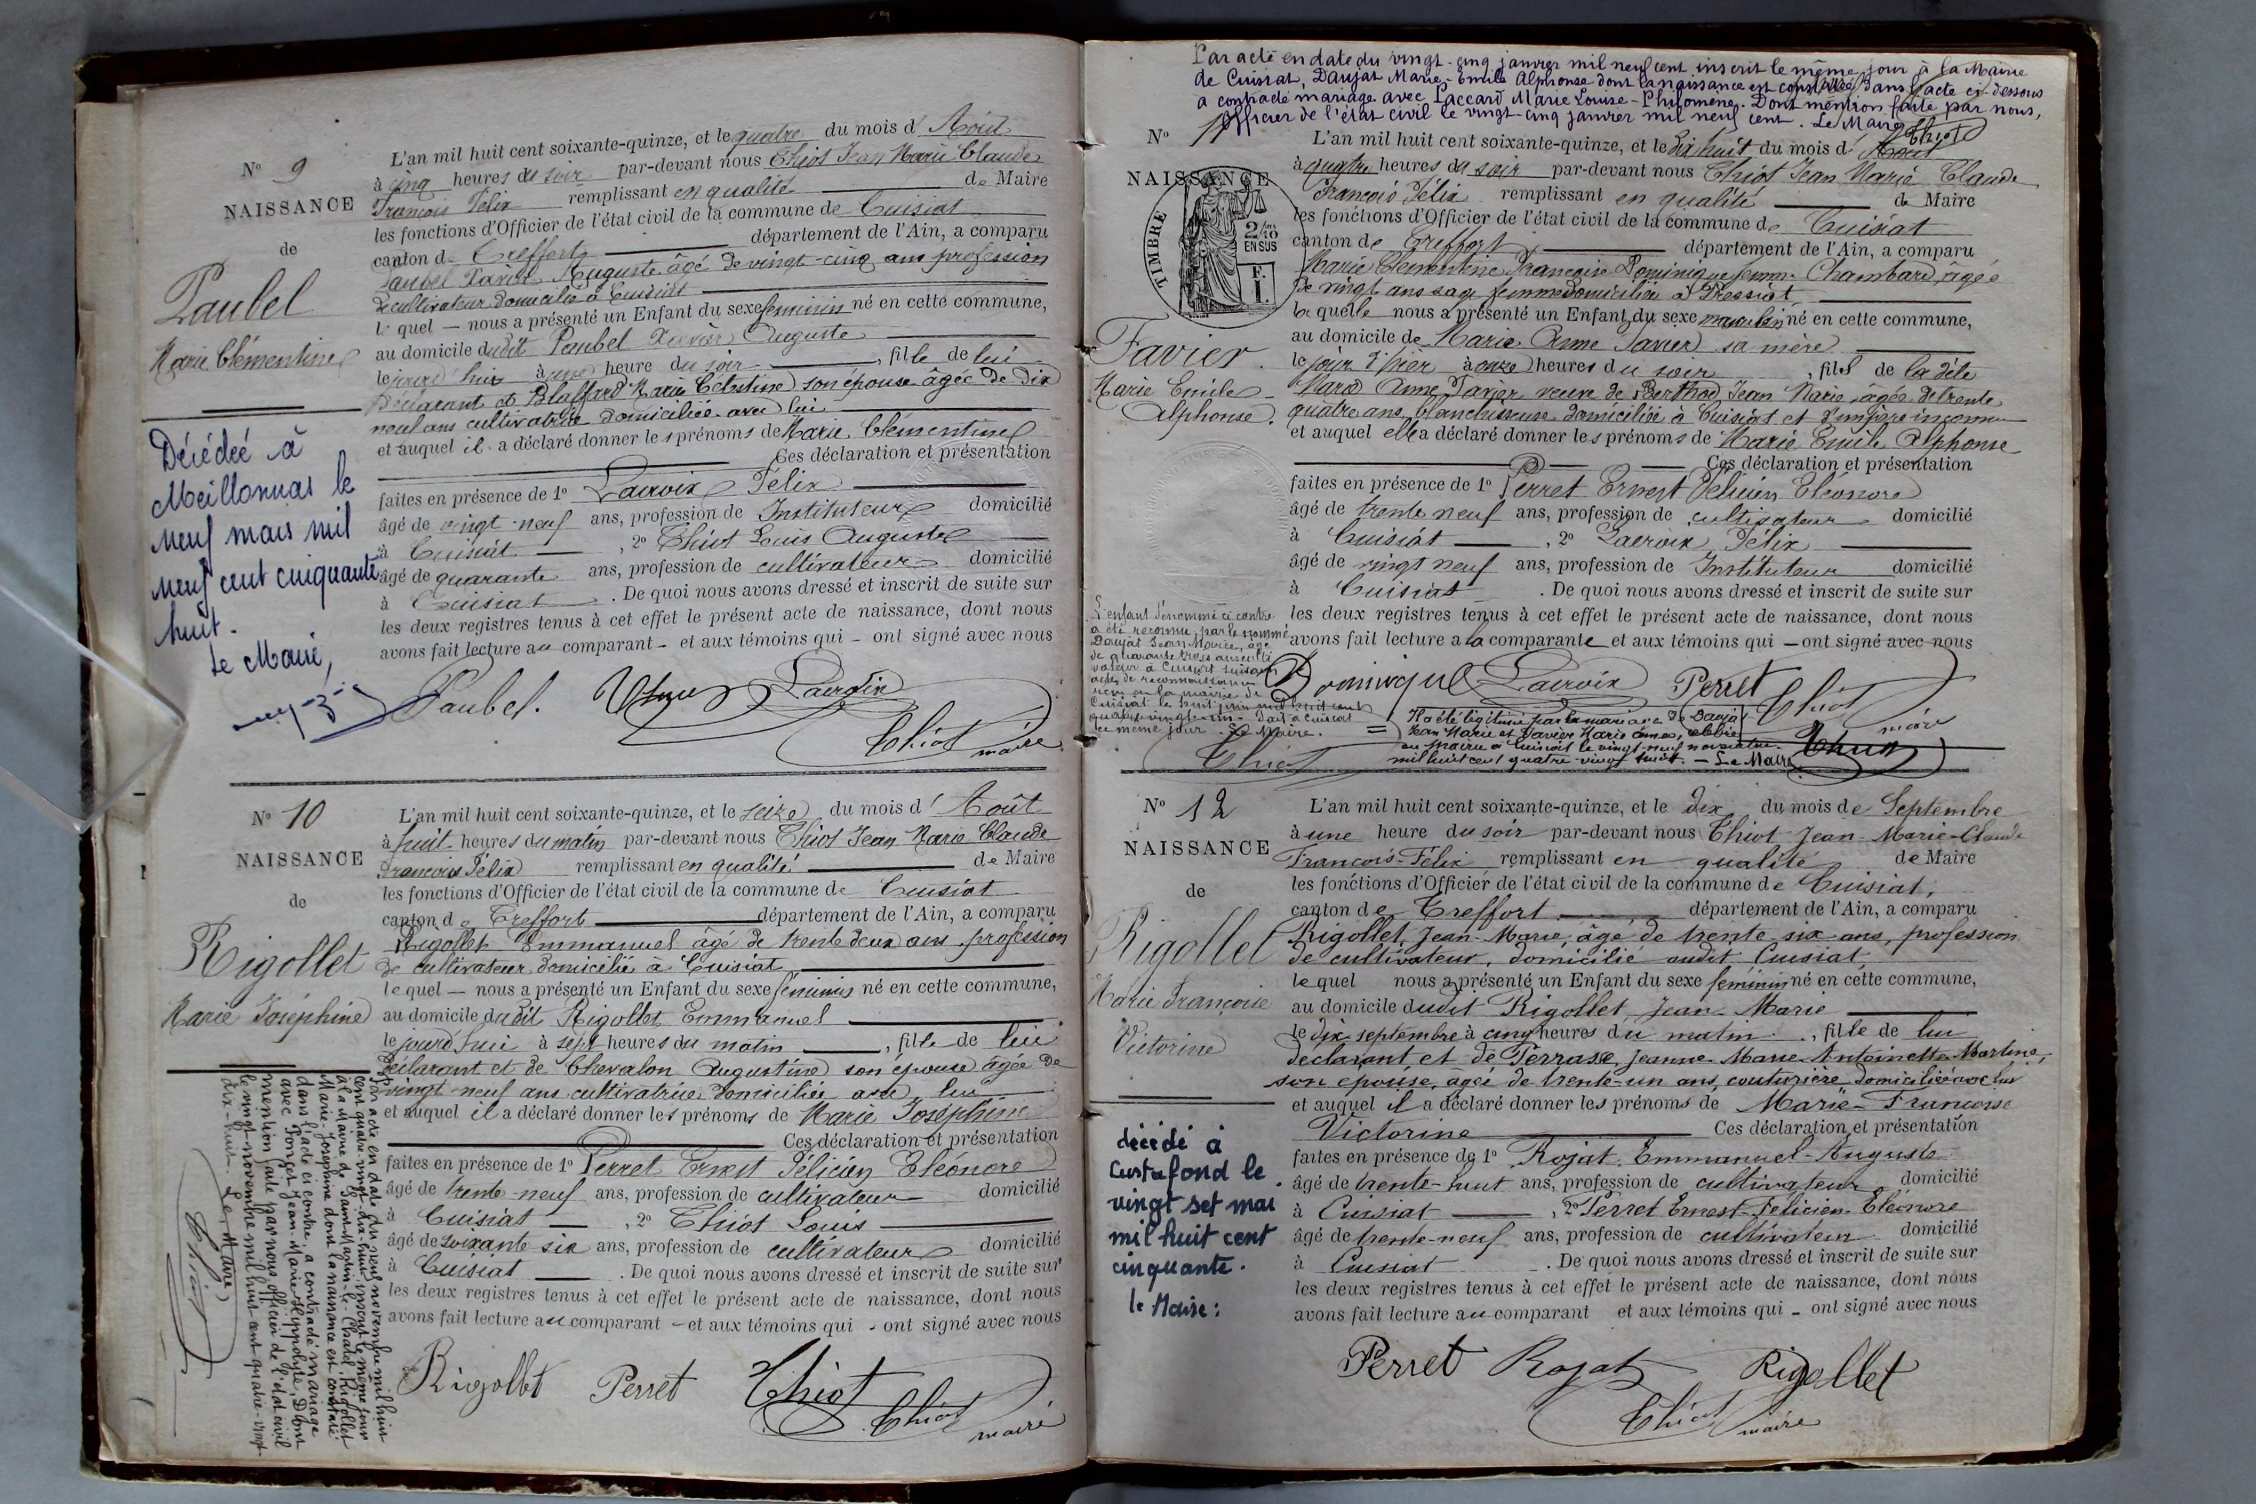 No 9
NAISSANCE
de
Paubel
Marie Clémentine
Décédée à
Meillonnas le
neuf mars mil
neuf cent cinquante
huit.
Le Maire,
L'an mil huit cent soixante-quinze, et le quatre du mois d' Août
à cinq heures du soir par-devant nous Thiot Jean Marie Claude
François Félix remplissant en qualité de Maire
les fonctions d'Officier de l'état civil de la commune de Cuisiat
canton de Treffort département de l'Ain, a comparu
Paubel Xavier Auguste âgé de vingt-cinq ans profession
de cultivateur domicilié à Cuisiat
lequel nous a présenté un Enfant du sexe féminin né en cette commune,
au domicile dudit Paubel Xavier Auguste
le jourd'hui à une heure du soir, fille de lui
déclarant et Blaffard Marie Célestine son épouse âgée de dix
neuf ans cultivatrice domiciliée avec lui
et auquel il a déclaré donner les prénoms de Marie Clémentine
Ces déclaration et présentation
faites en présence de 1o Lacroix Félix
âgé de vingt-neuf ans, profession de Instituteur domicilié
à Cuisiat, 2o Thiot Louis Auguste
âgé de quarante ans, profession de cultivateur domicilié
à Cuisiat. De quoi nous avons dressé et inscrit de suite sur
les deux registres tenus à cet effet le présent acte de naissance, dont nous
avons fait lecture au comparant et aux témoins qui ont signé avec nous
Paubel. Lacroix
Thiot maire
No 10
NAISSANCE
de
Rigollet
Marie Joséphine
L'an mil huit cent soixante-quinze, et le seize du mois d' Août
à huit heures du matin par-devant nous Thiot Jean Marie Claude
François Félix remplissant en qualité de Maire
les fonctions d'Officier de l'état civil de la commune de Cuisiat
canton de Treffort département de l'Ain, a comparu
Rigollet Emmanuel âgé de trente deux ans profession
de cultivateur domicilié à Cuisiat
lequel nous a présenté un Enfant du sexe féminin né en cette commune,
au domicile dudit Rigollet Emmanuel
le jourd'hui à sept heures du matin, fille de lui
déclarant et de Chevalon Augustine son épouse âgée de
vingt neuf ans cultivatrice domiciliée avec lui
et auquel il a déclaré donner les prénoms de Marie Joséphine
Ces déclaration et présentation
faites en présence de 1o Perret Ernest Félicien Eléonore
âgé de trente-neuf ans, profession de cultivateur domicilié
à Cuisiat, 2o Thiot Louis
âgé de soixante six ans, profession de cultivateur domicilié
à Cuisiat. De quoi nous avons dressé et inscrit de suite sur
les deux registres tenus à cet effet le présent acte de naissance, dont nous
avons fait lecture au comparant et aux témoins qui ont signé avec nous
Rigollet Perret Thiot
Thiot maire
Par acte en date du neuf novembre mil huit
cent quatre-vingt-dix-huit inscrit le même jour
à la Mairie de Saint-Martin-le-Chatel, Rigollet
Marie-Josephine dont la naissance est constatée
dans l'acte ci contre, a contracté mariage
avec Ponçet Jean-Marie-Hippolyte, Dont
mention faite par nous, officier de l'état civil
le vingt-novembre mil huit cent quatre-vingt
dix-huit. Le Maire
Thiot
Par acte en date du vingt-cinq janvier mil neuf cent inscrit le même jour à la Mairie
de Cuisiat, Daujat Marie-Emile Alphonse dont la naissance est constatée dans l'acte ci-dessous
a contracté mariage avec Paccard Marie Louise-Philomène. Dont mention faite par nous,
officier de l'état civil le vingt-cinq janvier mil neuf cent. Le Maire Thiot
No 11
NAISSANCE
TIMBRE
2/10
EN SUS
F.
I.
Favier
Marie Emile
Alphonse.
L'an mil huit cent soixante-quinze, et le dix huit du mois d' Août
à quatre heures du soir par-devant nous Thiot Jean Marie Claude
François Félix remplissant en qualité de Maire
les fonctions d'Officier de l'état civil de la commune de Cuisiat
canton de Treffort département de l'Ain, a comparu
Marie Clémentine Françoise Dominique femme Chambard, âgée
de vingt ans sage femme domiciliée à Pressiat
laquelle nous a présenté un Enfant du sexe masculin né en cette commune,
au domicile de Marie Anne Favier sa mère
le jour d'hier à onze heures du soir, fils de la dite
Marie Anne Favier veuve de Berthod Jean Marie, âgée de trente
quatre ans, blanchisseuse domiciliée à Cuisiat et d'un père inconnu
et auquel elle a déclaré donner les prénoms de Marie Emile Alphonse
Ces déclaration et présentation
faites en présence de 1o Perret Ernest Félicien Eléonore
âgé de trente neuf ans, profession de cultivateur domicilié
à Cuisiat, 2o Lacroix Félix
âgé de vingt neuf ans, profession de Instituteur domicilié
à Cuisiat. De quoi nous avons dressé et inscrit de suite sur
les deux registres tenus à cet effet le présent acte de naissance, dont nous
avons fait lecture à la comparante et aux témoins qui ont signé avec nous
Dominique Lacroix Perret Thiot
maire
L'enfant dénommé ci contre
a été reconnu par le nommé
Daujat Jean Marie, âgé
de quarante trois ans culti
vateur à Cuisiat suivant
acte de reconnaissance
reçu en la mairie de
Cuisiat le huit juin mil huit cent
quatre-vingt-un. Dait à Cuisiat
le même jour. Le Maire.
Thiot
Il a été légitimé par le mariage de Daujat
Jean Marie et Favier Marie Anne, célébré
en mairie à Cuisiat le vingt-neuf novembre
mil huit cent quatre-vingt huit. - Le Maire
Thiot
No 12
NAISSANCE
de
Rigollet
Marie Françoise
Victorine
décédé à
Curtafond le
vingt set mai
mil huit cent
cinquante.
le Maire:
L'an mil huit cent soixante-quinze, et le dix du mois de Septembre
à une heure du soir par-devant nous Thiot Jean-Marie-Claude
François-Félix remplissant en qualité de Maire
les fonctions d'Officier de l'état civil de la commune de Cuisiat,
canton de Treffort département de l'Ain, a comparu
Rigollet, Jean-Marie, âgé de trente-six ans, profession
de cultivateur, domicilié audit Cuisiat
lequel nous a présenté un Enfant du sexe féminin né en cette commune,
au domicile dudit Rigollet, Jean-Marie
le dix septembre à cinq heures du matin, fille de lui
déclarant et de Perrasse, Jeanne-Marie-Antoinette-Martine,
son épouse, âgée de trente-un ans, couturière domiciliée avec lui
et auquel il a déclaré donner les prénoms de Marie-Françoise
Victorine Ces déclaration et présentation
faites en présence de 1o Rojat Emmanuel-Auguste
âgé de trente-huit ans, profession de cultivateur domicilié
à Cuisiat, 2o Perret Ernest-Félicien-Eléonore
âgé de trente-neuf ans, profession de cultivateur domicilié
à Cuisiat. De quoi nous avons dressé et inscrit de suite sur
les deux registres tenus à cet effet le présent acte de naissance, dont nous
avons fait lecture au comparant et aux témoins qui ont signé avec nous
Perret Rojat Rigollet
Thiot maire